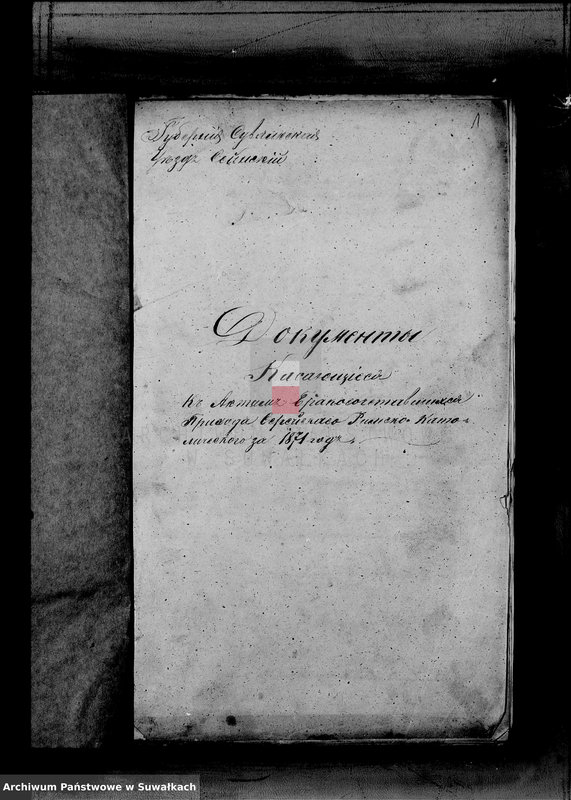 1
Губернія Сувалкская
Уѣздъ Сейнскій
Документы
Касающіеся
къ Актамъ Бракосочетавшихся
Прихода Серейскаго Римско-Като-
лическаго за 1871 годъ.
Archiwum Państwowe w Suwałkach